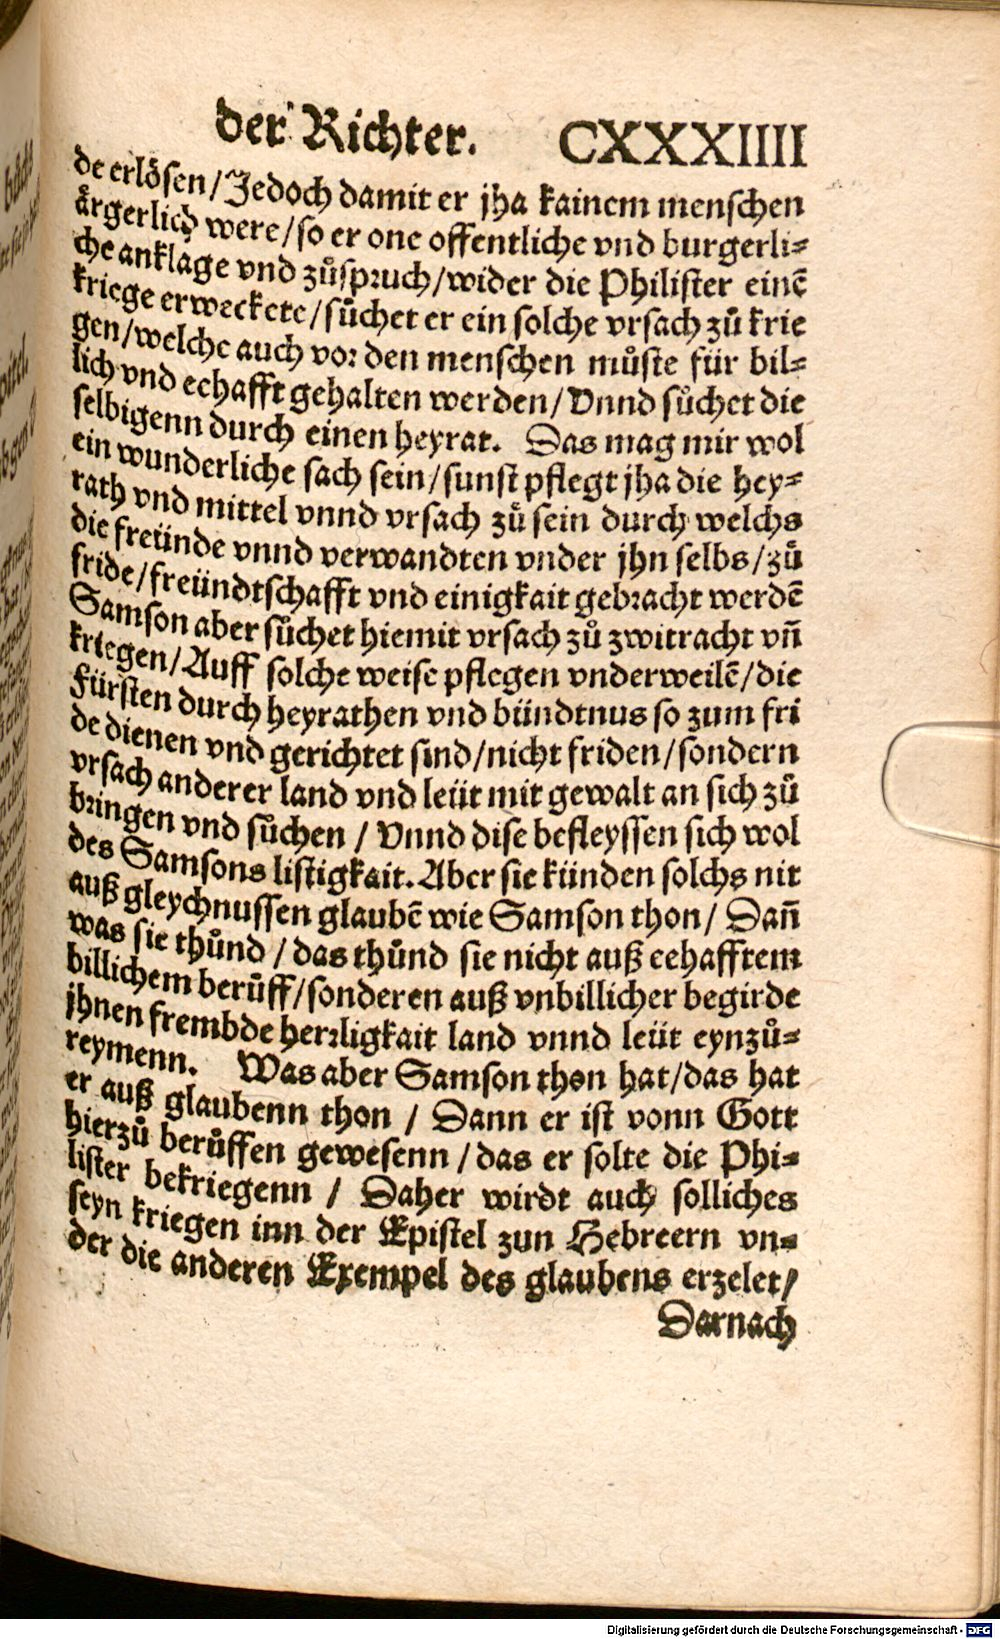 der Richter. CXXXIIII
de erlösen/Jedoch damit er jha kainem menschen
ärgerlich were/so er one offentliche vnd burgerli=
che anklage vnd zůspruch/wider die Philister einẽ
kriege erweckete/sůchet er ein solche vrsach zů krie
gen/welche auch vor den menschen můste für bil=
lich vnd echafft gehalten werden/Vnnd sůchet die
selbigenn durch einen heyrat. Das mag mir wol
ein wunderliche sach sein/sunst pflegt jha die hey=
rath vnd mittel vnnd vrsach zů sein durch welchs
die freünde vnnd verwandten vnder jhn selbs/zů
fride/freündtschafft vnd einigkait gebracht werdẽ
Samson aber sůchet hiemit vrsach zů zwitracht vñ
kriegen/Auff solche weise pflegen vnderweilẽ/die
Fürsten durch heyrathen vnd bündtnus so zum fri
de dienen vnd gerichtet sind/nicht friden/sondern
vrsach anderer land vnd leüt mit gewalt an sich zů
bringen vnd sůchen / Vnnd dise befleyssen sich wol
des Samsons listigkait. Aber sie künden solchs nit
auß gleychnussen glaubẽ wie Samson thon/ Dañ
was sie thůnd / das thůnd sie nicht auß eehafftem
billichem berůff/sonderen auß vnbillicher begirde
jhnen frembde herrligkait land vnnd leüt eynzů=
reymenn. Was aber Samson thon hat/das hat
er auß glaubenn thon / Dann er ist vonn Gott
hierzů berůffen gewesenn / das er solte die Phi=
lister bekriegenn / Daher wirdt auch solliches
seyn kriegen inn der Epistel zun Hebreern vn=
der die anderen Exempel des glaubens erzelet/
Darnach
Digitalisierung gefördert durch die Deutsche Forschungsgemeinschaft - DFG